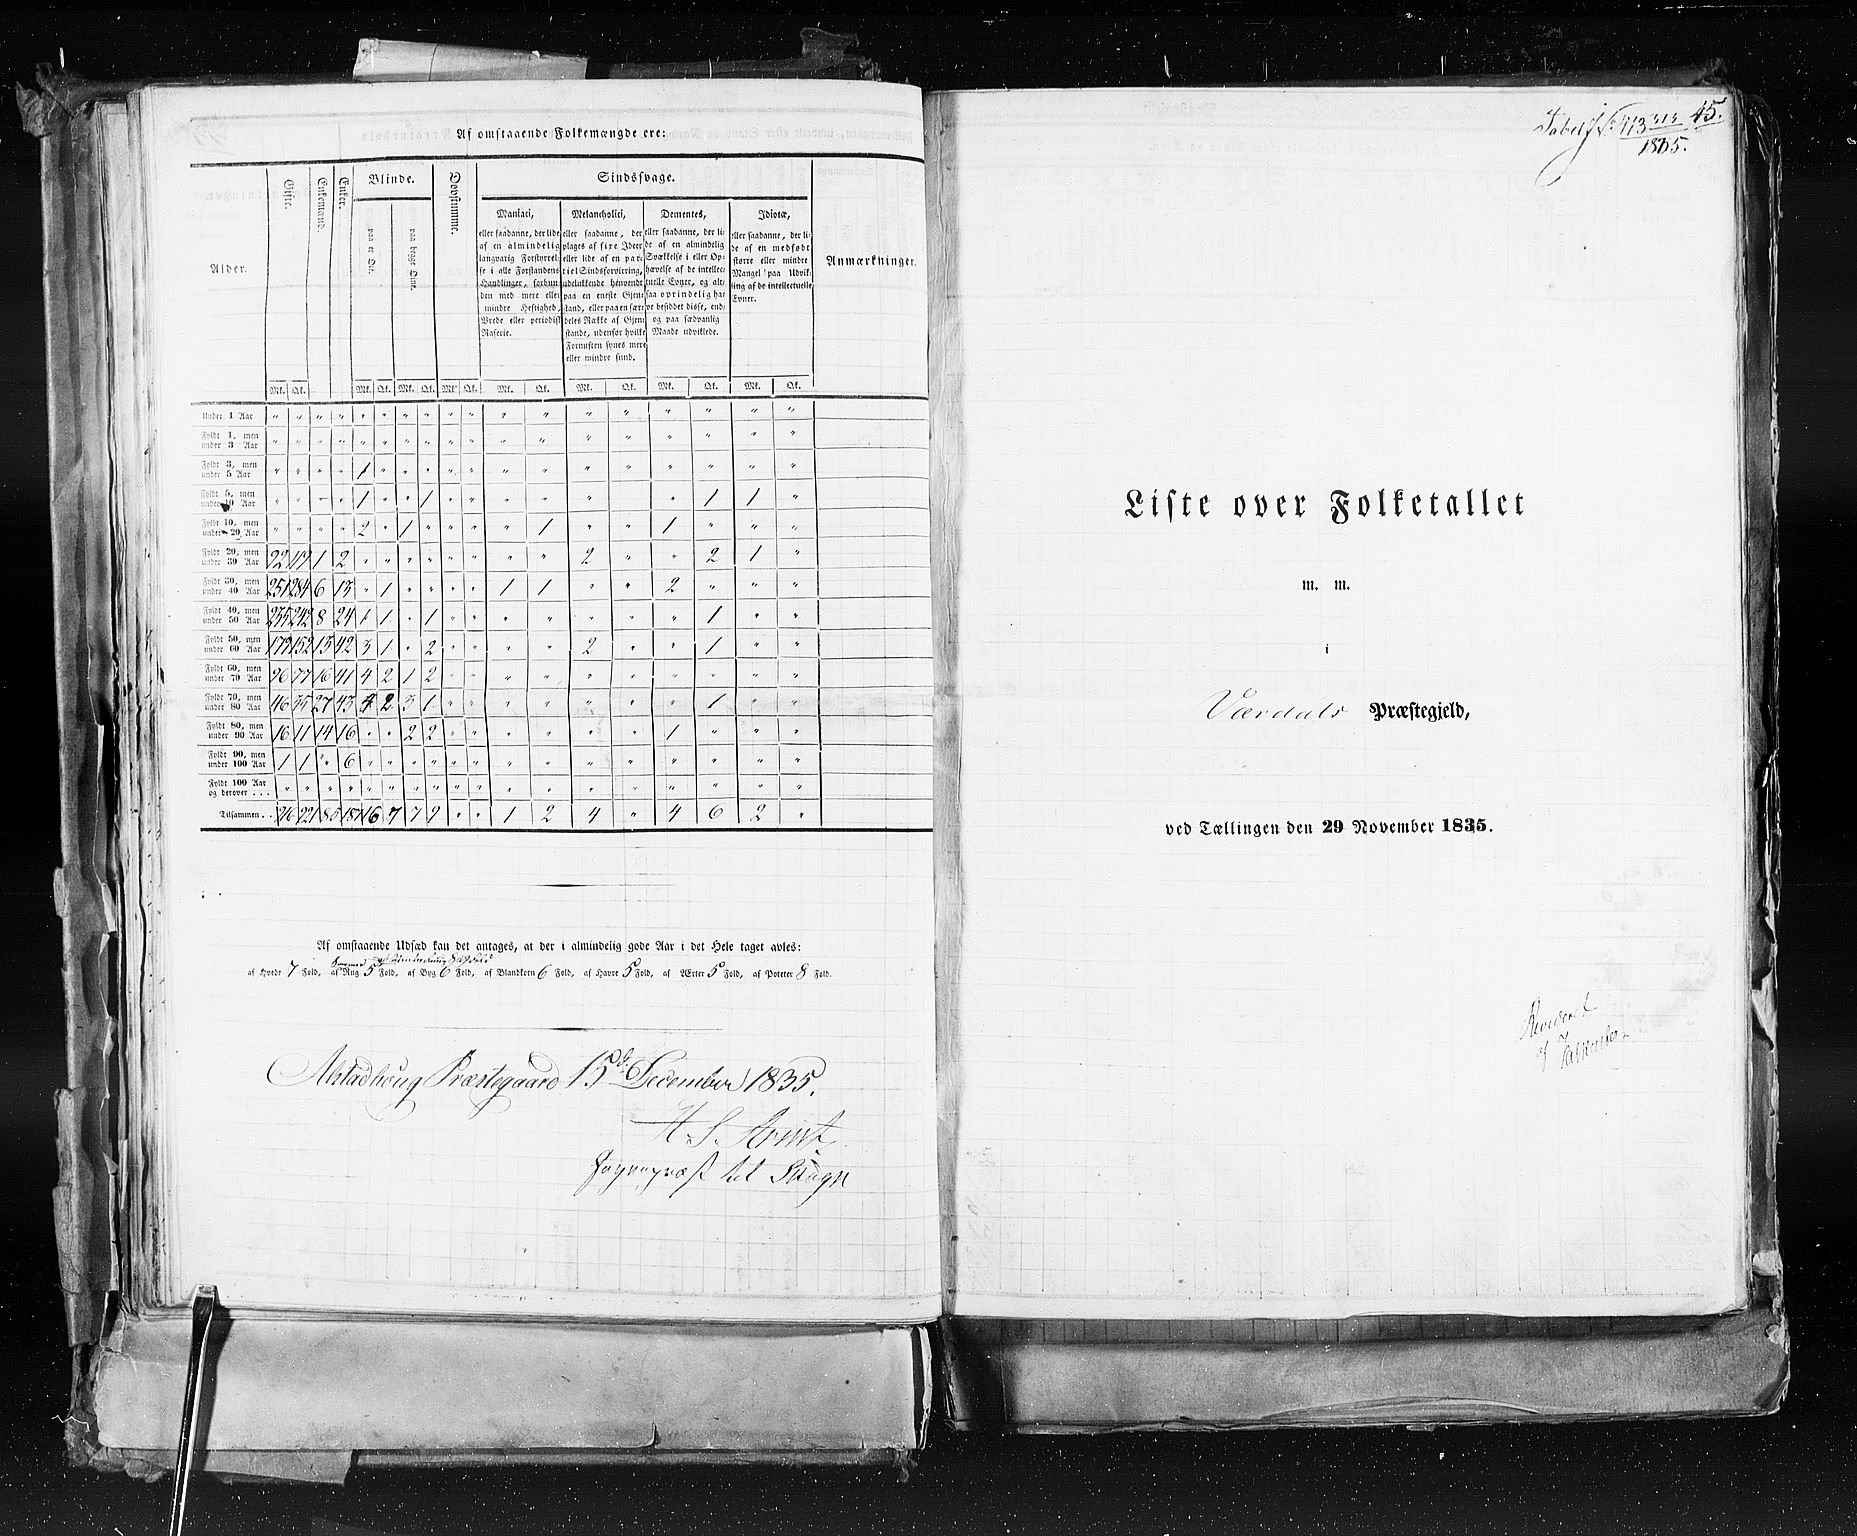 Af omstaaende Folkemængde ere:
Alder. Gifte. Enkemænd. Enker. Blinde. Døvstumme. Sindssvage. Anmærkninger.
paa et Øie. paa begge Øine.
Maniaci,
eller saadanne, der lide
af en almindelig
langvarig Forstyrrel-
se i alle Forstandens
Handlinger, forbun-
den med mere eller
mindre Heftighed,
Vrede eller periodisk
Raserie.
Melancholici,
eller saadanne, der
plages af fixe Ideer
eller lide af en par-
tiel Sindsforvirring,
udelukkende henvendt
paa en eneste Gjen-
stand, eller paa en sær-
deles Række af Gjen-
stande, udenfor hvilke
Fornuften synes mere
eller mindre sund.
Dementes,
eller saadanne, der li-
de af en almindelig
Svækkelse i eller Op-
hævelse af de intellec-
tuelle Evner, og alt-
saa oprindelig ha-
ve besiddet disse, end-
og paa sædvanlig
Maade udviklede.
Idiotæ,
eller saadanne, der li-
de af en medfødt
større eller mindre
Mangel paa Udvik-
ling af de intellectuelle
Evner.
Mk. Qk. Mk. Qk. Mk. Qk. Mk. Qk. Mk. Qk. Mk. Qk. Mk. Qk. Mk. Qk.
Under 1 Aar " " " " " " " " " " " " " " " " " "
Fyldt 1, men under 3 Aar " " " " " " " " " " " " " " " " " "
Fyldt 3, men under 5 Aar " " " " 1 " " " " " " " " " " " " "
Fyldt 5, men under 10 Aar " " " " 1 " " 1 " " " " " " " 1 1 "
Fyldt 10, men under 20 Aar " " " " 2 " 1 " " " " 1 " " 1 " " "
Fyldt 20, men under 30 Aar 92 119 1 2 " " " " " " " " 2 " " 2 1 "
Fyldt 30, men under 40 Aar 251 284 6 13 " 1 " " " " 1 1 " " 2 " " "
Fyldt 40, men under 50 Aar 235 242 8 24 1 1 " 1 " " " " " " " 1 " "
Fyldt 50, men under 60 Aar 179 152 13 42 3 1 " 2 " " " " 2 " " 1 " "
Fyldt 60, men under 70 Aar 96 77 16 41 4 2 1 2 " " " " " " " " " "
Fyldt 70, men under 80 Aar 46 35 27 43 4 2 3 1 " " " " " " " 1 " "
Fyldt 80, men under 90 Aar 16 11 14 16 " " 2 2 " " " " " " 1 " " "
Fyldt 90, men under 100 Aar 1 1 " 6 " " " " " " " " " " " " " "
Fyldt 100 Aar og derover . . . " " " " " " " " " " " " " " " " " "
Tilsammen . . 916 921 85 187 16 7 7 9 " " 1 2 4 " 4 6 2 "
Af omstaaende Udsæd kan det antages, at der i almindelig gode Aar i det Hele taget avles:
af Hvede 7 Fold, af Rug 5 Fold, af Byg 6 Fold, af Blandkorn 6 Fold, af Havre 5 Fold, af Ærter 5 Fold, af Poteter 8 Fold.
Alstadhoug Præstegaard 15de December 1835.
Sognepræst til Stedet
Tabel J No 413
45.
1865.
Liste over Folketallet
m. m.
i
Værdals Præstegjeld,
ved Tællingen den 29 November 1835.
Revideret